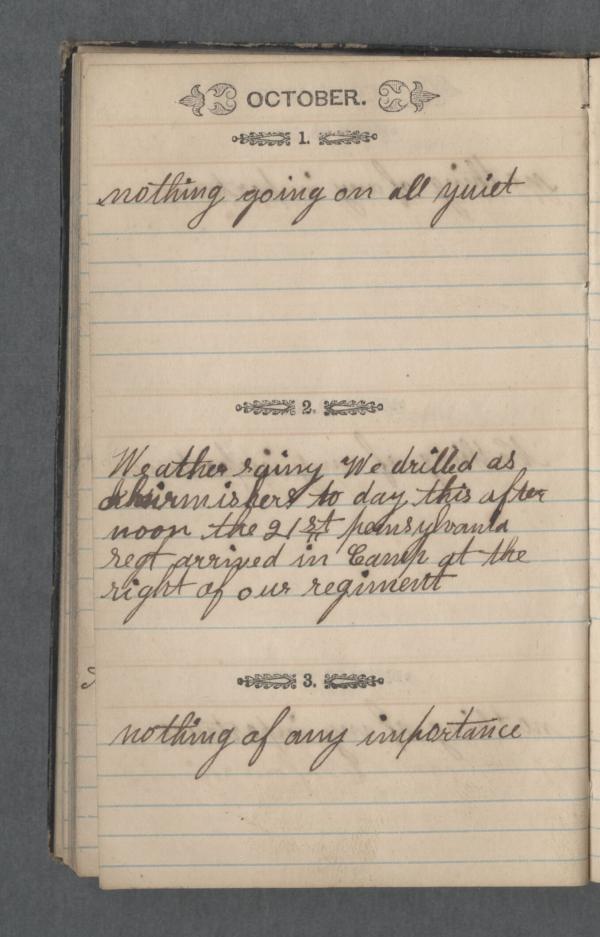 OCTOBER.
1.
nothing going on all quiet
2.
Weather rainy We drilled as
skirmishers to day this after
noon the 21st pensylvania
regt arrived in Camp at the
right of our regiment
3.
nothing of any importance